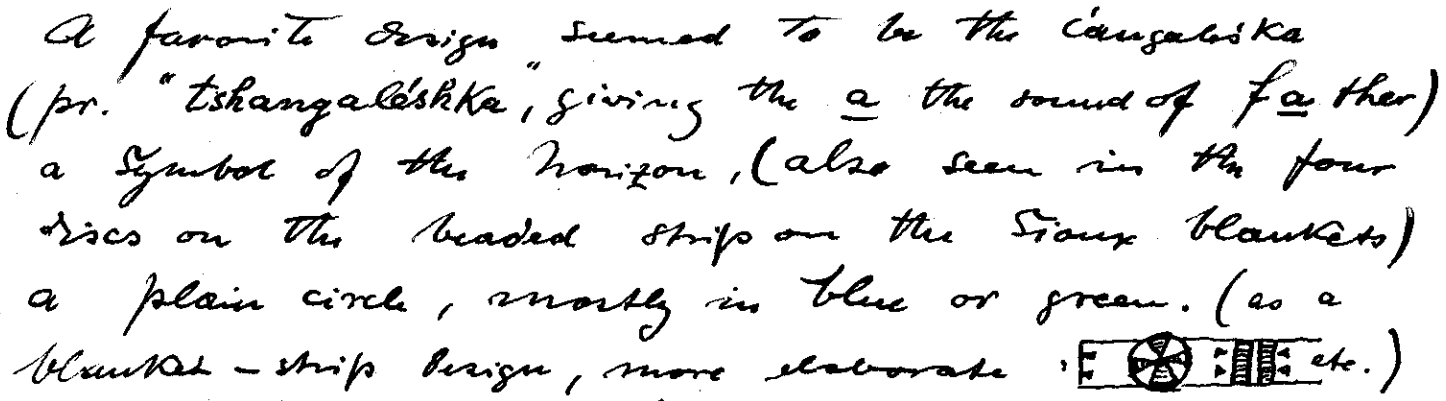 A favorite design seemed to be the ćangaleška
(pr. "tshangaléshka", giving the a the sound of father)
a symbol of the horizon, (also seen in the four
discs on the beaded strip on the Sioux blankets)
a plain circle, mostly in blue or green. (as a
blanket-strip design, more elaborate : etc.)